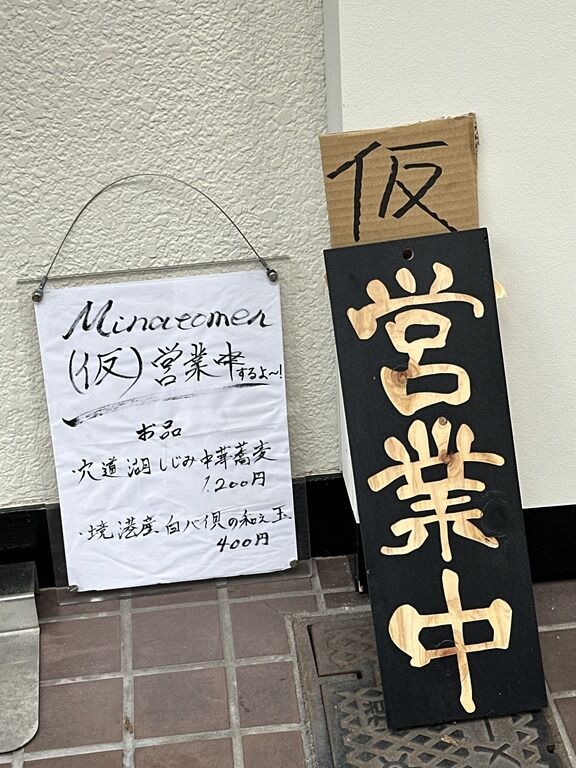 Minatomen
(仮)営業中するよ〜!
お品
・宍道湖しじみ中華蕎麦
1.200円
・境港産白バイ貝の和え玉
400円
仮
営業中